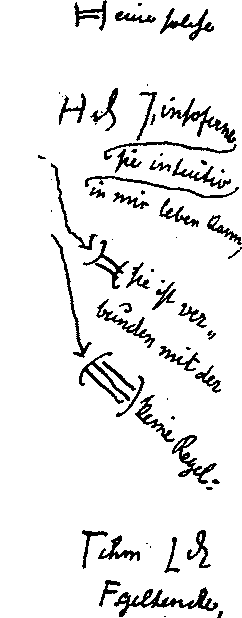 eine solche
H ch J, insoferne
sie intuitiv
in mir leben kann,
sie ist ver„
bunden mit der
keine Regel:
T chm L ch
F geltende,